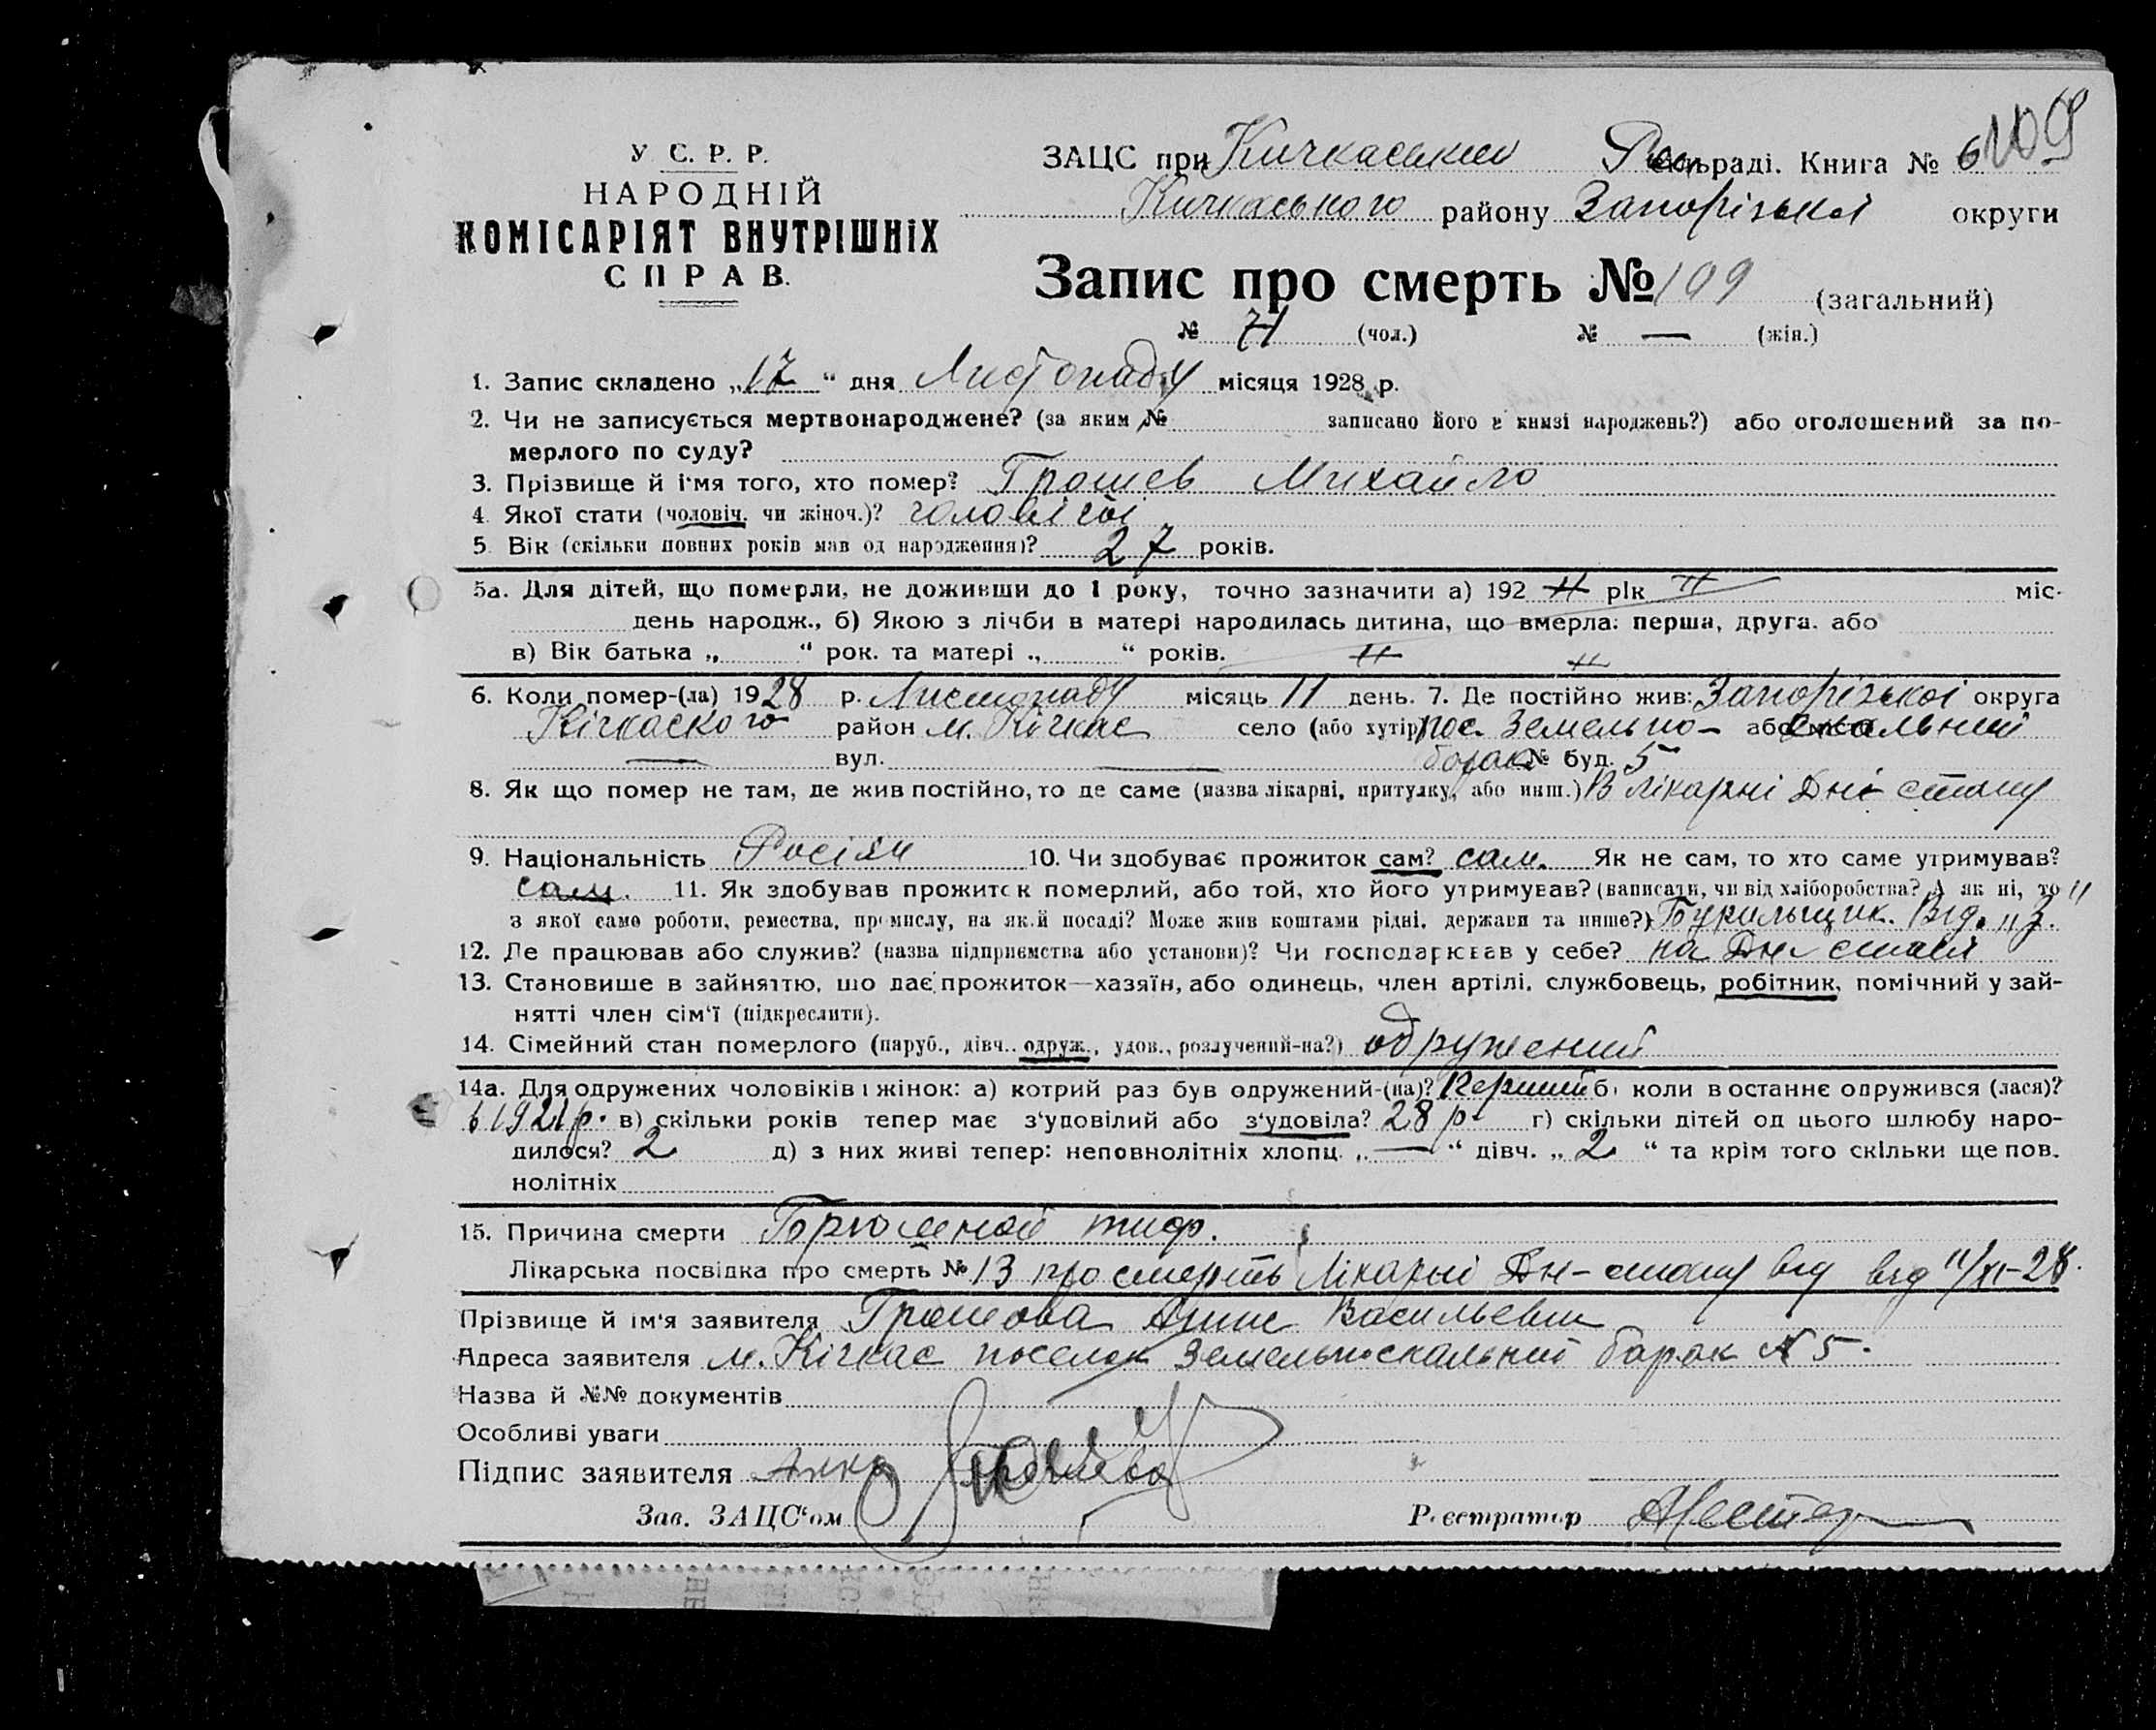 У. С. Р. Р.
НАРОДНІЙ
КОМІСАРІЯТ ВНУТРІШНІХ
СПРАВ.
ЗАЦС при Кичкаський сільраді. Книга № 6
109
Кичкаського району Запорізької округи
Запис про смерть № 199 (загальний)
№ 71 (чол.) № — (жін.)
1. Запис складено „17“ дня Листопаду місяця 1928 р.
2. Чи не записується мертвонароджене? (за яким № записано його в книзі народжень?) або оголошений за по-
мерлого по суду?
3. Прізвище й ім'я того, хто помер? Грошев Михайло
4. Якої стати (чоловіч. чи жіноч.)? чоловічої
5. Вік (скільки повних років мав од народження)? 27 років.
5а. Для дітей, що померли, не доживши до 1 року, точно зазначити а) 192 рік міс.
день народж., б) Якою з лічби в матері народилась дитина, що вмерла: перша, друга. або
в) Вік батька „ “ рок. та матері „ “ років.
6. Коли помер-(ла) 1928 р. Листопаду місяць 11 день. 7. Де постійно жив: Запорізької округа
Кічкаского район м. Кічкас село (або хутір) пос. Земельно- або скальний
— вул. — барак № буд. 5
8. Як що помер не там, де жив постійно, то де саме (назва лікарні, притулку, або инш.) В лікарні Дні-стану
9. Національність Росіян 10. Чи здобуває прожиток сам? сам. Як не сам, то хто саме утримував?
сам. 11. Як здобував прожиток померлий, або той, хто його утримував? (написати, чи від хліборобства? А як ні, то
з якої саме роботи, ремества, промислу, на якій посаді? Може жив коштами рідні, держави та инше?) Бурильщик. Від. „З.“
12. Де працював або служив? (назва підприємства або установи)? Чи господарював у себе? на Дн-стані
13. Становише в зайняттю, що дає прожиток—хазяїн, або одинець, член артілі, службовець, робітник, помічний у зай-
нятті член сім'ї (підкреслити).
14. Сімейний стан померлого (паруб., дівч., одруж., удов., розлучений-на?) одружений
14а. Для одружених чоловіків і жінок: а) котрий раз був одружений-(на)? Перший б) коли в останнє одружився (лася)?
в 1921 р. в) скільки років тепер має з'удовілий або з'удовіла? 28 р. г) скільки дітей од цього шлюбу наро-
дилося? 2 д) з них живі тепер: неповнолітніх хлопц. „—“ дівч. „2“ та крім того скільки ще пов.
нолітніх
15. Причина смерти Брюшной тиф.
Лікарська посвідка про смерть № 13 про смерть Лікарні Дн-стану від від 11/XI-28.
Прізвище й ім'я заявителя Грошова Анна Васильевна
Адреса заявителя м. Кічкас поселок Земельноскальний барак № 5.
Назва й №№ документів
Особливі уваги
Підпис заявителя Анна
Зав. ЗАЦС'ом
Реєстратор